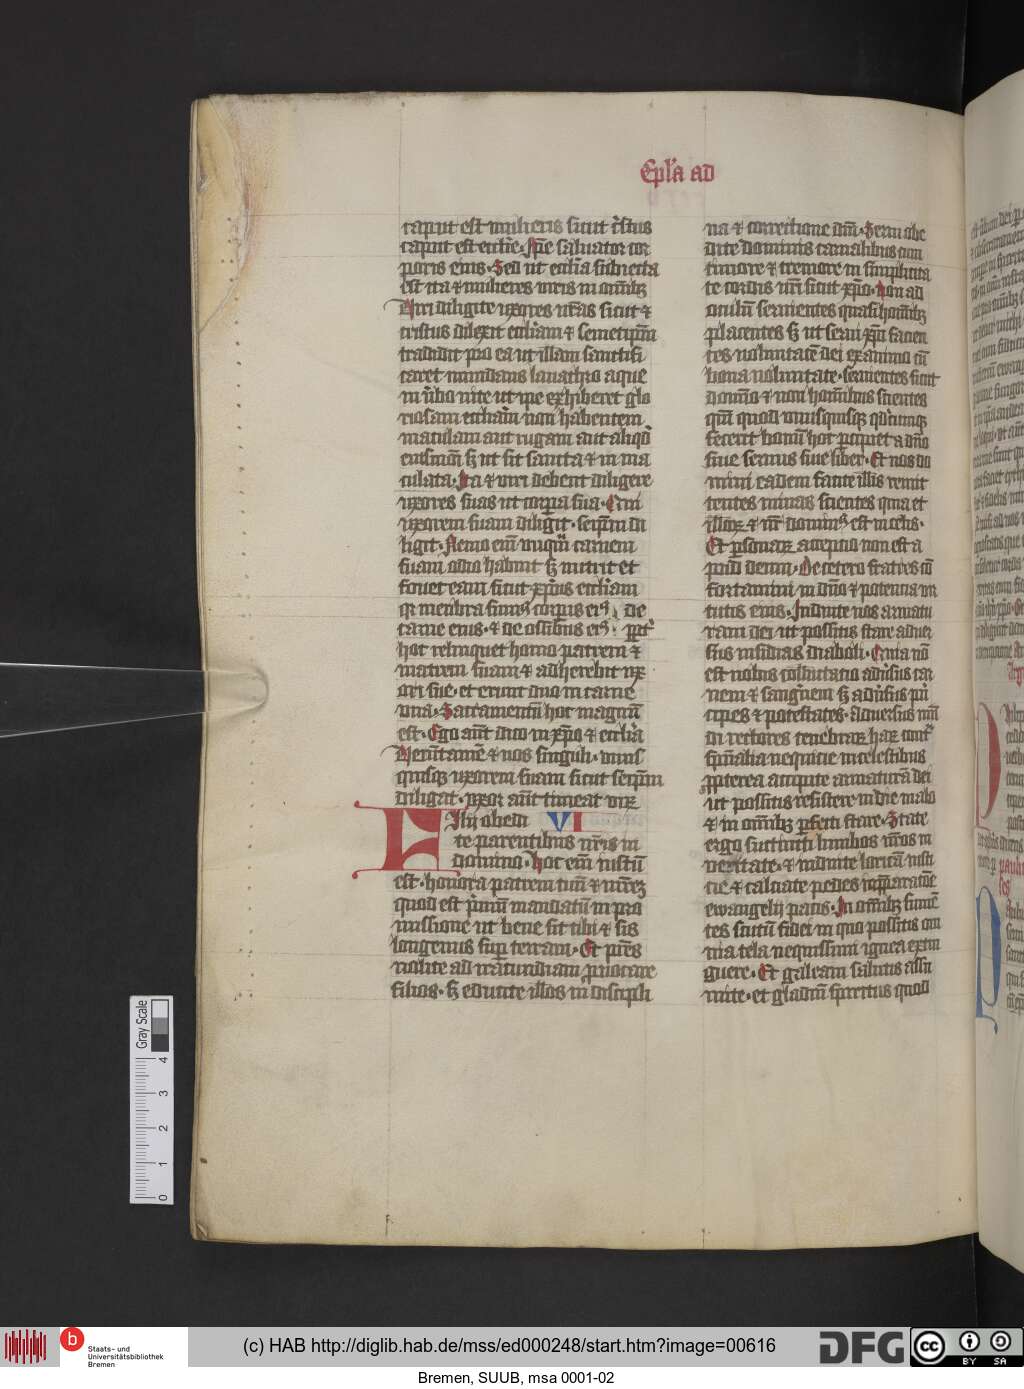 Epl'a ad
caput est mulieris sicut c̄stus
caput est eccl'ie. Ip̄e saluator cor
poris eius. Sed ut eccl'ia subiecta
est ita & mulieres uiris in om̄ibȝ
Uiri diligite uxores ur̄as sicut &
cristus dilexit eccl'iam & semetip̄m
tradidit pro ea ut illam sanctifi
caret mundans lauachro aque
in ūbo uite ut ipe exhiberet glo
riosam eccl'iam non habentem
maculam aut rugam aut aliqd̄
eiusmōi sȝ ut sit sancta & in ma
culata. Ita & uiri debent diligere
uxores suas ut corp̄a sua. Qui
uxorem suam diligit. seip̄m di
ligit. Nemo em̄ unq̄m carnem
suam odio habuit sȝ nutrit et
fouet eam sicut xp̄us eccl'iam
qr membra sumꝰ corpus eiꝰ. de
carne eius. & de ossibus eiꝰ. ppt'
hoc relinquet homo patrem &
matrem suam & adherebit ux
ori sue. et erunt duo in carne
una. Sacramentū hoc magnū
est. Ego aūt dico in xp̄o & eccl'ia
Uerūtamē & uos singuli. unus
quisqȝ uxorem suam sicut seip̄m
diligat. uxor aūt timeat uirū
Filij obedi VI
te parentibus ur̄is in
domino. hoc em̄ iustū
est. honora patrem tuū & mr̄eȝ
quod est p̄mū mandatū in pro
missione ut bene sit tibi & sis
longeuus sup̄ terram. Et pr̄es
nolite ad iracundiam p̄uocare
filios. sȝ educate illos in discipli
na & correctione dn̄i. Serui obe
dite dominis carnalibus cum
timore & tremore in simplicita
te cordis ur̄i sicut xp̄o. Non ad
oculū seruientes quasi hoīnibȝ
placentes sȝ ut serui xp̄i facien
tes uoluntatē dei ex animo cū
bona uoluntate. seruientes sicut
domīo & non hom̄ibus scientes
qm̄ quod unusquisqȝ qd'cumqȝ
fecerit bonū hoc p̄cipiet a dn̄o
siue seruus siue liber. Et uos do
mini eadem facite illis remit
tentes minas scientes quia et
illoꝝ & ur̄ dominꝰ est in celis.
Et p̄sonaꝝ acceptio non est a
pud deum. De cetero fratres cō
fortamini in dn̄o & potencia uir
tutis eius. Induite uos armatu
ram dei ut possitis stare aduer
sus insidias diaboli. Quia nō
est nobis colluctatio adūsus car
nem & sangūem sȝ adūsus pn̄
cipes & potestates. aduersus mūi
di rectores tenebraꝝ haꝝ cont̄
sp̄ualia nequicie in celestibus
ppterea accipite armaturā dei
ut possitis resistere in die malo
& in om̄ibȝ perfecti stare. State
ergo succincti lumbos ur̄os in
ueritate. & induite loricam iusti
cie & calciate pedes in p̄paratōe
ewangelij pacis. In om̄ibȝ sumē
tes scutū fidei in quo possitis om
nia tela nequissimi ignea extin
guere. Et galeam salutis assu
mite. et gladiū spiritus quod
Gray Scale
4
3
2
1
0
Staats- und
Universitätsbibliothek
Bremen
(c) HAB http://diglib.hab.de/mss/ed000248/start.htm?image=00616
DFG
cc BY SA
Bremen, SUUB, msa 0001-02